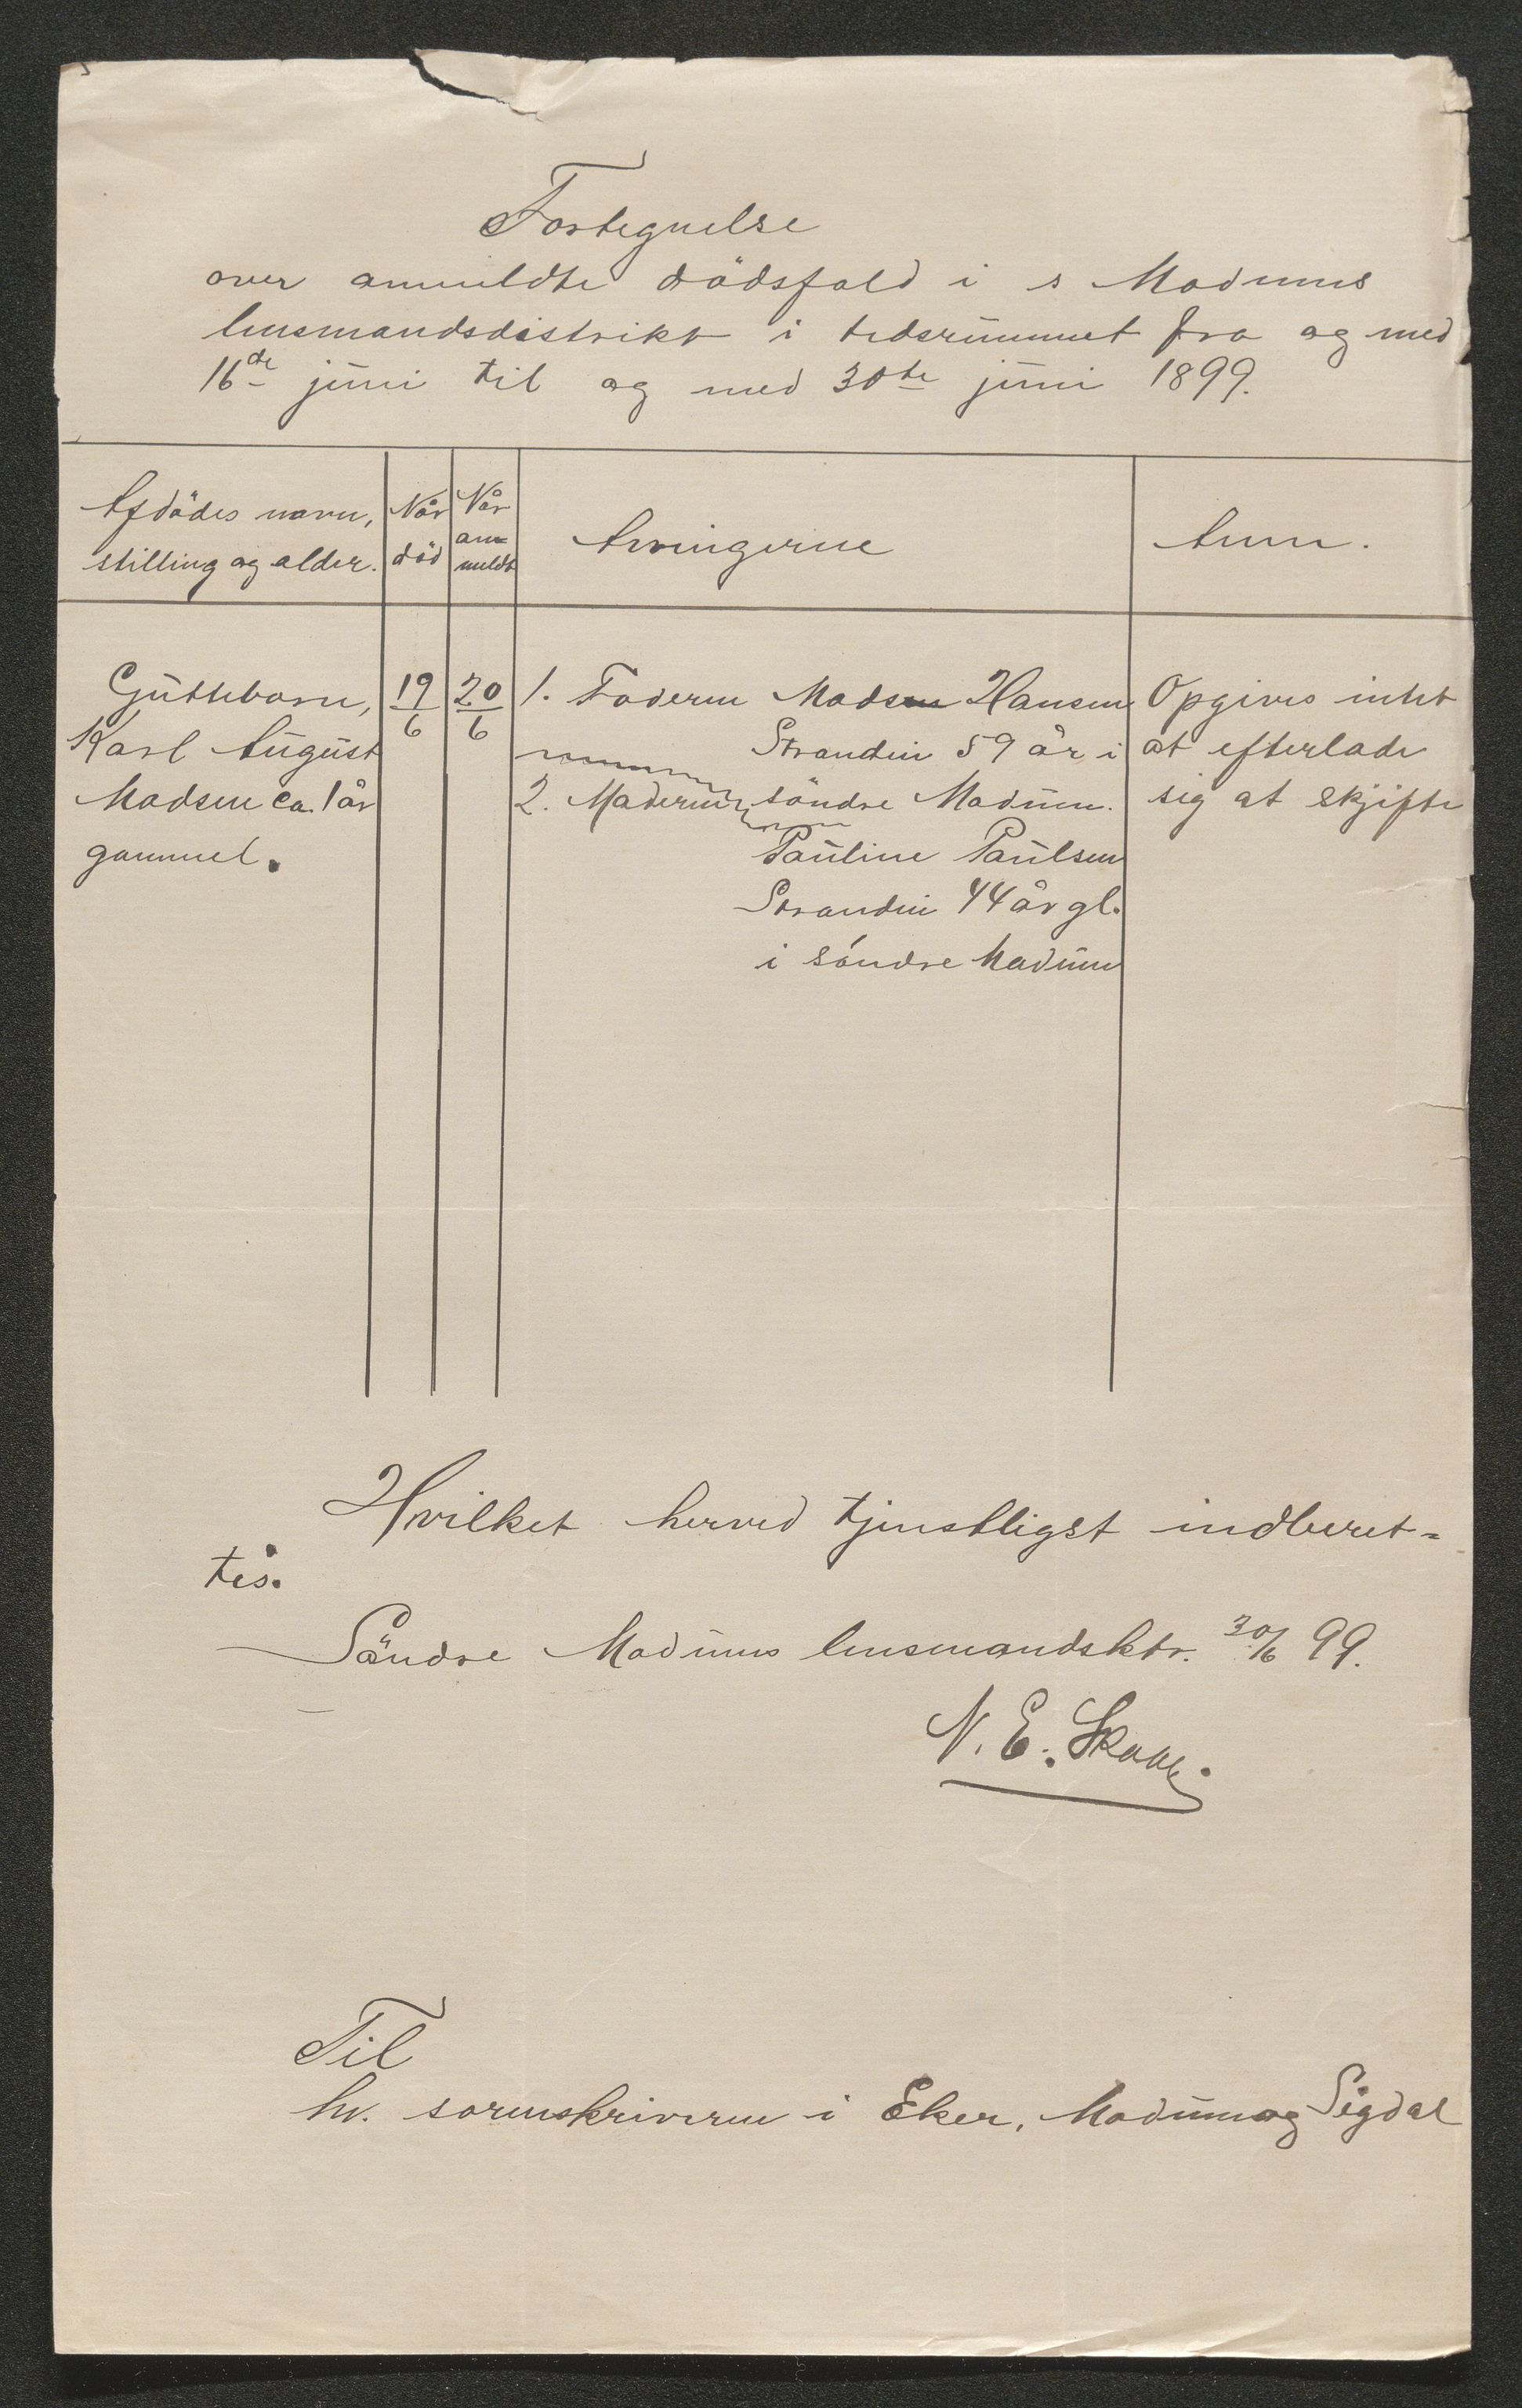 Fortegnelse
over anmeldte dödsfald i s Modums
lensmandsdistrikt i tidsrummet fra og med
16de juni til og med 30te juni 1899.
Afdödes navn,
stilling og alder.
Når
död
Når
an-
meldt
Arvingerne
Anm.
Guttebarn,
Karl August
Madsen ca. 1 år
gammel.
19/6
20/6
1. Faderen Mads Hansen
Strandin 59 år i
2. Moderen söndre Modum.
Pauline Paulsen
Strandin 44 år gl.
i söndre Modum
Opgives intet
at efterlade
sig at skjifte
Hvilket herved tjenstligst indberet-
tes.
Söndre Modums lensmandsktr. 30/6 99.
N. E. Skaae.
Til
hr. sorenskriveren i Eker, Modum og Sigdal